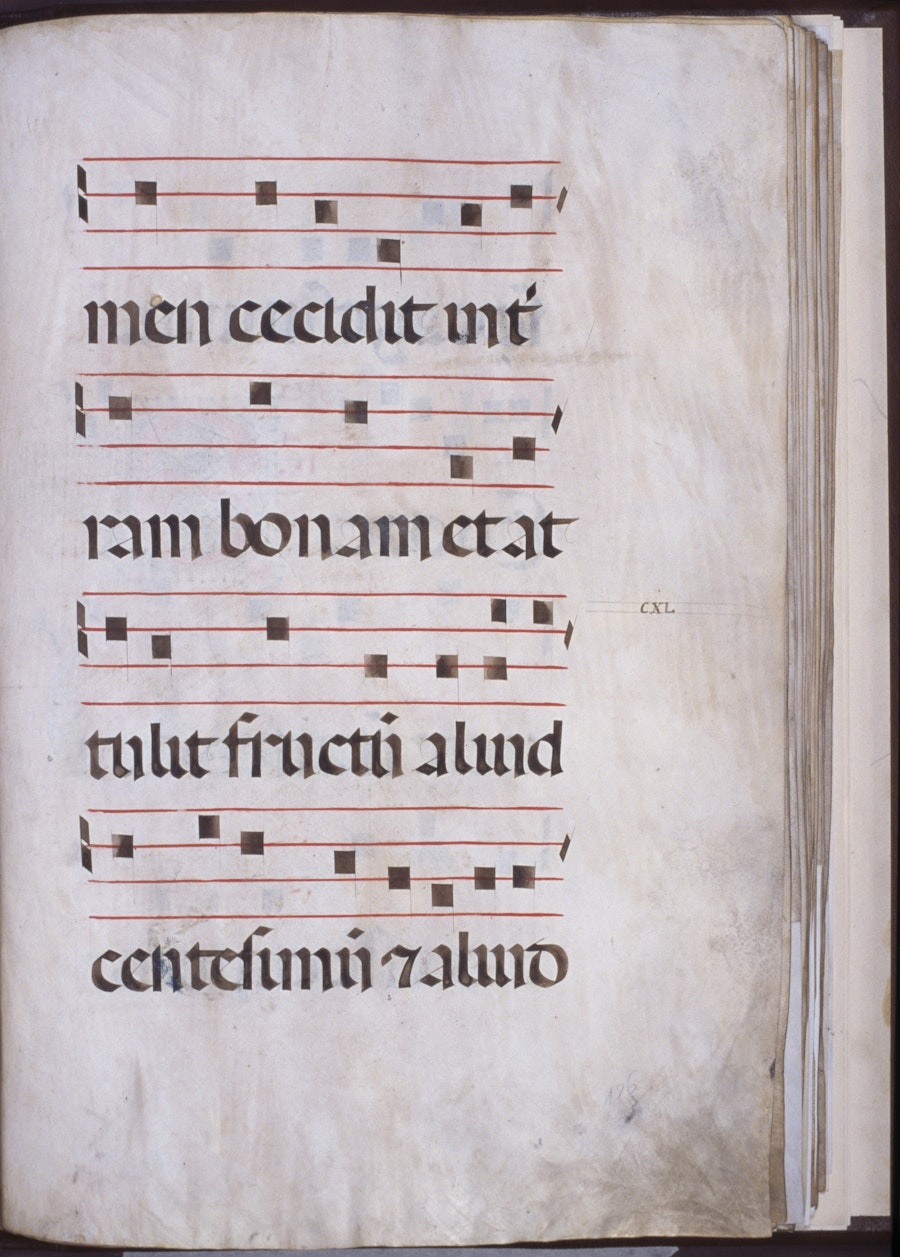 men cecidit int̾
ram bonam et at
tulit fructū aliud
CXL
centesimū ⁊ aliud